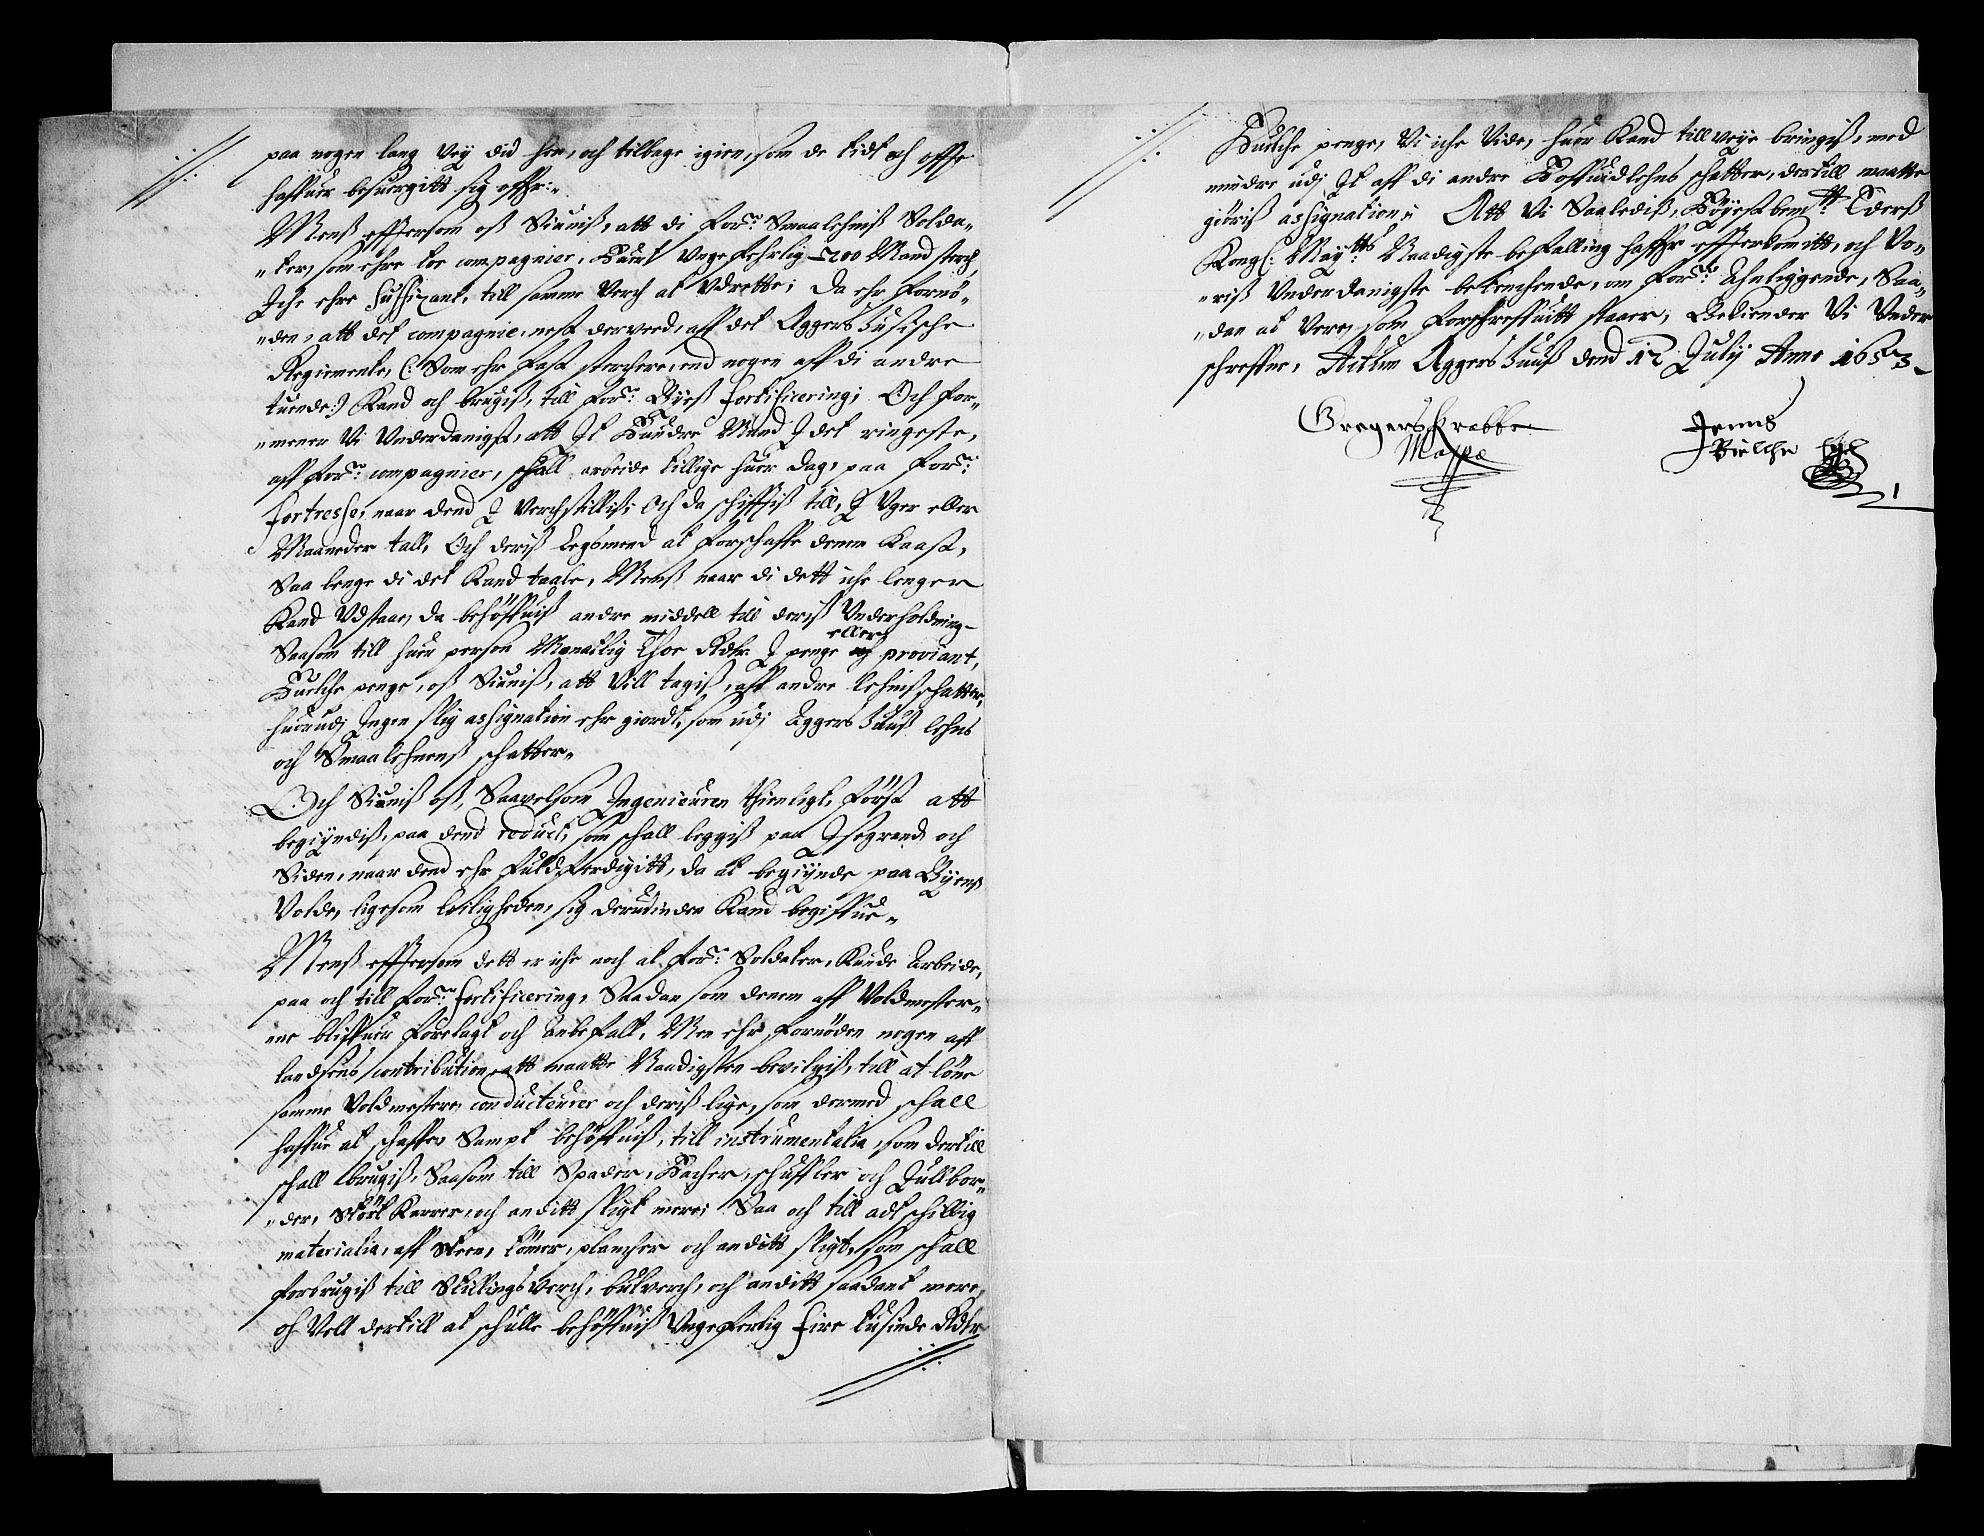 paa nogen lang Vey did hen, och tilbage igien, som de tidt och offte
haffuer besuergitt sig offr:
Menß efftersom oß Siuniß, att di forn: Smaalehnß Solda-
-ter, som ehre toe compagnier, huert Vngefehrlig 200 Mand sterch
Iche ehre suffizant, till samme Verch at Vdrette; Da ehr fornö-
-den, att det compagnie, nest derved, aff det Aggershusische
Regimente, (: Som ehr fast sterchere, end nogen aff di andre
tuende:) Kand och brugiß, till forn: Byeß fortificering; Och for-
-mener Vi Vnderdanigst, att It hundre Mand I det ringeste,
aff forn: compagnier, schall arbeide tillige huer dag, paa forn:
fortresse, naar dend I Verchstillis; Och da schifftiß till, I Vger eller
Maaneder tall, Och deriß Legsmend at forschaffe dennem Kaast,
Saa lenge di det Kand taale, Menß naar di dett iche lenger
Kand Vdstaae, da behöffuiß andre middell till deriß Vnderholdning
Saasom till huer person Maanetlig Thoe Rdlr I penge eller proviant,
Huilche penge, oß Siuniß, att Vill tagiß, aff andre Lehnß schatter,
huorudj Ingen slig assignation ehr giordt, som udj Aggershuuß lehns
och Smaalehnenß schatter
Och Siuniß oß, Saavelsom Ingenieuren thienligt, först att
begiyndiß, paa dend reduct, som schall leggiß paa Isegrand och
Siden, naar dend ehr fuldferdigitt, da at begiynde paa Byenß
Volde, ligesom Leiligheden, sig derudinden Kand begiffue
Menß efftersom dett er iche noch at forn: Soldater, Kunde Arbeide,
paa och till forn: fortificering, Saadan som dennem aff Voldmester-
ne bliffuer forelagt och anbefalt, Men ehr fornöden nogen aff
landsens contribution, att maatte Naadigsten bevilgiß, till at löne
samme Voldmestere, conducteurer och deriß lige, som dermed schall
haffue at schaffe, Sampt behöffuiß, till instrumentalia, som dertill
schall brugiß, Saasom till Spader, Hacher, schuffler och Jullbor-
-der, stört Karrer, och anditt sligt mere; Saa och till adtschillig
materialia, aff Steen, tömer, plancher och anditt sligt, som schall
forbrugiß till Stillingsverch, bulverch, och anditt saadant mere,
oh Vell dertill at schulle behöffuiß Vngeferlig fire tusinde Rdlr
Huilche penge, Vi iche Vide, huor Kand tillveye bringiß, med
mindre udj It aff di andre hoffuidlehns schatter, dertill maatte
giöriß assignation; Att Vi Saaledis, höyestbemtt: Ederß
Kong: Maytts: Naadigste befalling haffr efterkomitt, och Vo-
-riß Vnderdanigste betenchende, om forn: Anliggende, Saa-
-dan at Vere, som forschreffuitt staaer, Bekiender Vi Vnder
schreffne, Actum Aggershuuß dend 12 July Anno 1653
Gregers Krabbe
Mpp
Jenns
Bielche